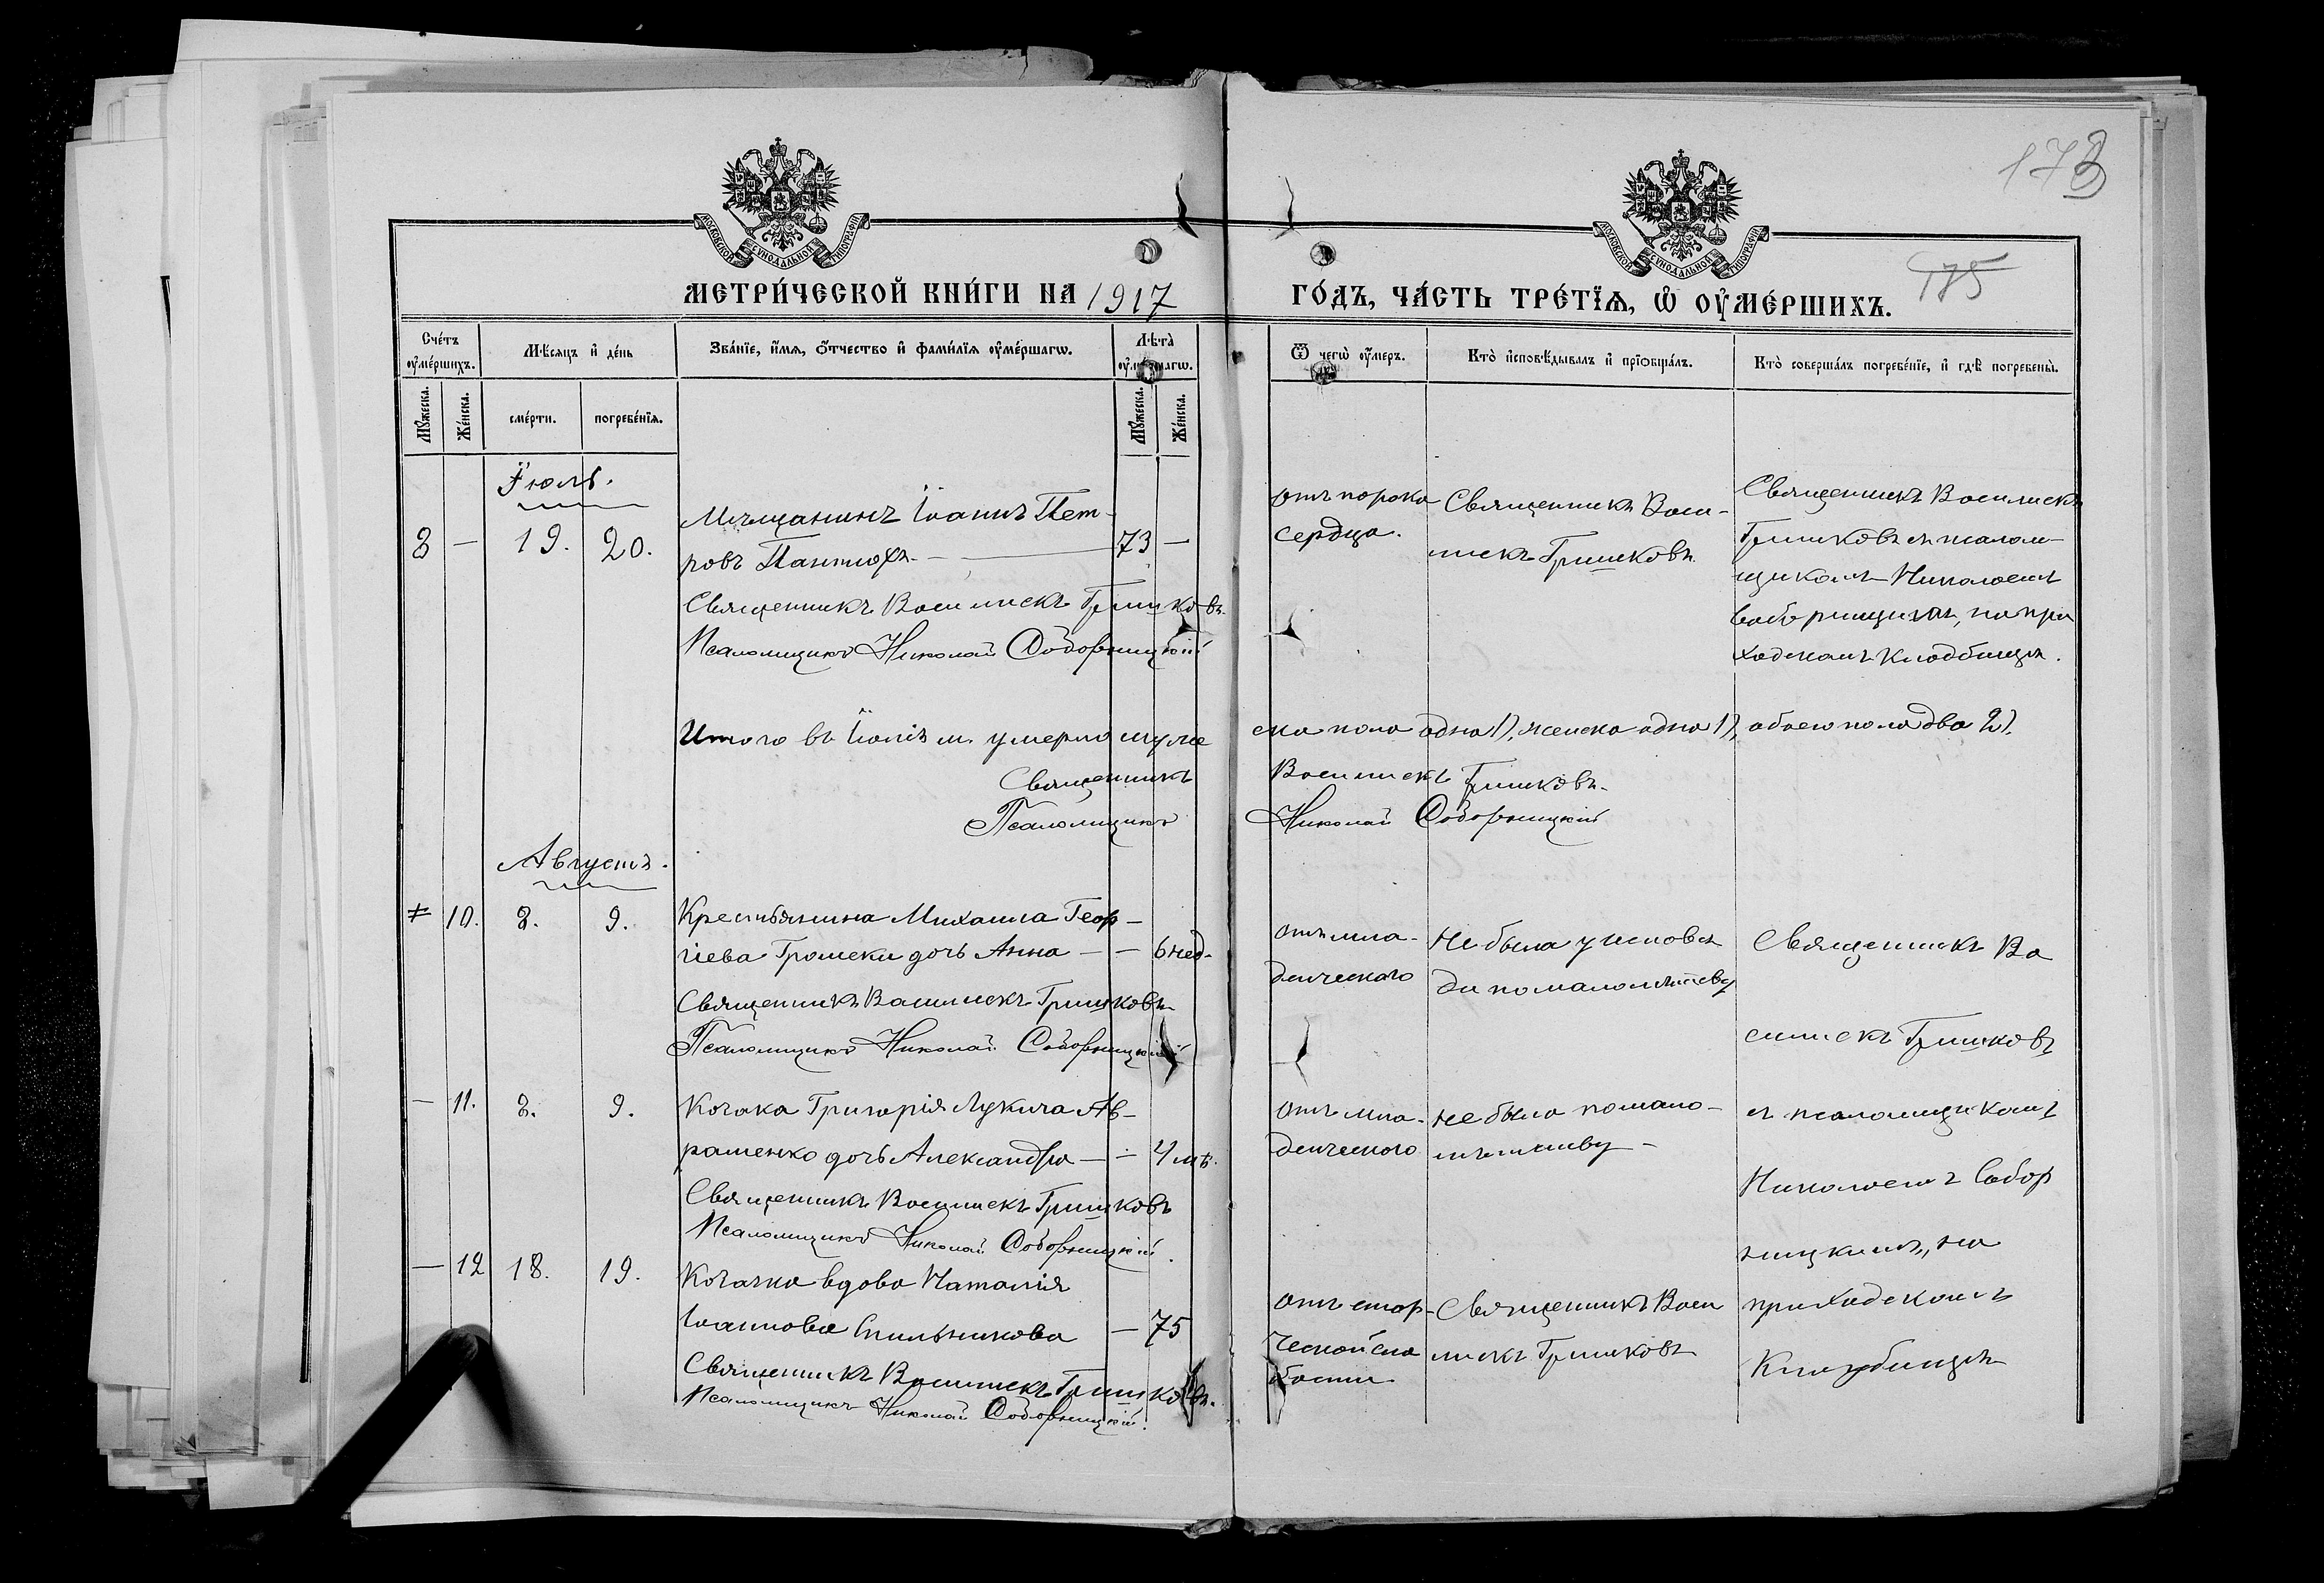 173
175
МОСКОВСКОЙ СѴНОДАЛЬНОЙ ТИПОГРАФІИ
МОСКОВСКОЙ СѴНОДАЛЬНОЙ ТИПОГРАФІИ
МЕТРИ́ЧЕСКОЙ КНИ́ГИ НА 1917 ГО́ДЪ, ЧА́СТЬ ТРЕ́ТЇѦ, Ѡ҆ ОУ҆МЕ́РШИХЪ.
Сче́тъ оу҆ме́ршихъ.
Мѣ́сяцъ и҆ де́нь
Зва́нїе, и҆́мѧ, ѻ҆́тчество и҆ фами́лїѧ оу҆ме́ршагѡ.
Лѣ́та̀ оу҆ме́ршагѡ.
Ѿ чегѡ̀ оу҆́меръ.
Кто̀ и҆сповѣ́дывалъ и҆ прїѡбща́лъ.
Кто̀ соверша́лъ погребе́нїе, и҆ гдѣ̀ погребены̀.
Мꙋ́жеска.
Же́нска.
сме́рти.
погребе́нїѧ.
Мꙋ́жеска.
Же́нска.
Іюль.
8 — 19. 20.
Мѣщанинъ Іоаннъ Пет-
ровъ Пантюхъ. — 73 —
Священникъ Василискъ Гришковъ.
Псаломщикъ Николай Соборницкій
отъ порока
сердца.
Священникъ Васи-
лискъ Гришковъ.
Священникъ Василискъ
Гришковъ съ псалом-
щикомъ Николаемъ
Соборницкимъ, на при
ходскомъ кладбищѣ.
Итого въ Іюлѣ м. умерло муже
ска пола одна 1), женска одна 1), обоего пола два 2).
Священникъ Василискъ Гришковъ.
Псаломщикъ Николай Соборницкій
Августъ.
10. 8. 9.
Крестьянина Михаила Геор-
гіева Громеки дочь Анна — — 6 нед.
Священникъ Василискъ Гришковъ
Псаломщикъ Николай Соборницкій
отъ мла-
денческаго
Не была у исповѣ
ди по малолѣтству
Священникъ Ва
силискъ Гришковъ
— 11. 8. 9.
Козака Григорія Лукича Ав-
раменко дочь Александра — — 4 лѣ.
Священникъ Василискъ Гришковъ
Псаломщикъ Николай Соборницкій.
отъ мла-
денческаго
не была по мало-
лѣтству —
съ псаломщикомъ
Николаемъ Собор
ницкимъ, на
— 12 18. 19.
Козачка вдова Наталія
Іоаннова — 75
Священникъ Василискъ Гришковъ.
Псаломщикъ Николай Соборницкій.
отъ стар-
ческой сла
бости
Священникъ Васи
лискъ Гришковъ
приходскомъ
Кладбищѣ